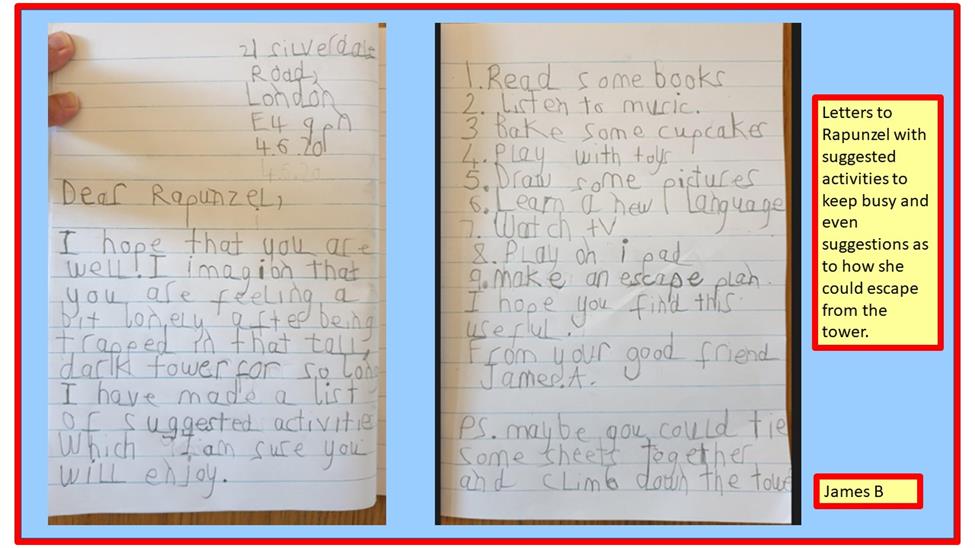 21 Silverdale
Road,
London
E4 9pn
4.6.20
4.6.20
Dear Rapunzel,
I hope that you are
well! I imagion that
you are feeling a
bit lonely after being
trapped in that tall,
dark tower for so long
I have made a list
of suggested activitie
Which I am sure you
will enjoy.
1. Read some books
2. Listen to music.
3 Bake some cupcakes
4. Play with toys
5. Draw some pictures
6. Learn a new language
7. Watch tV
8. Play on i pad
9. make an escape plan.
I hope you find this
useful.
From your good friend
James.A.
PS. maybe you could tie
some sheets together
and climb down the towe
Letters to
Rapunzel with
suggested
activities to
keep busy and
even
suggestions as
to how she
could escape
from the
tower.
James B